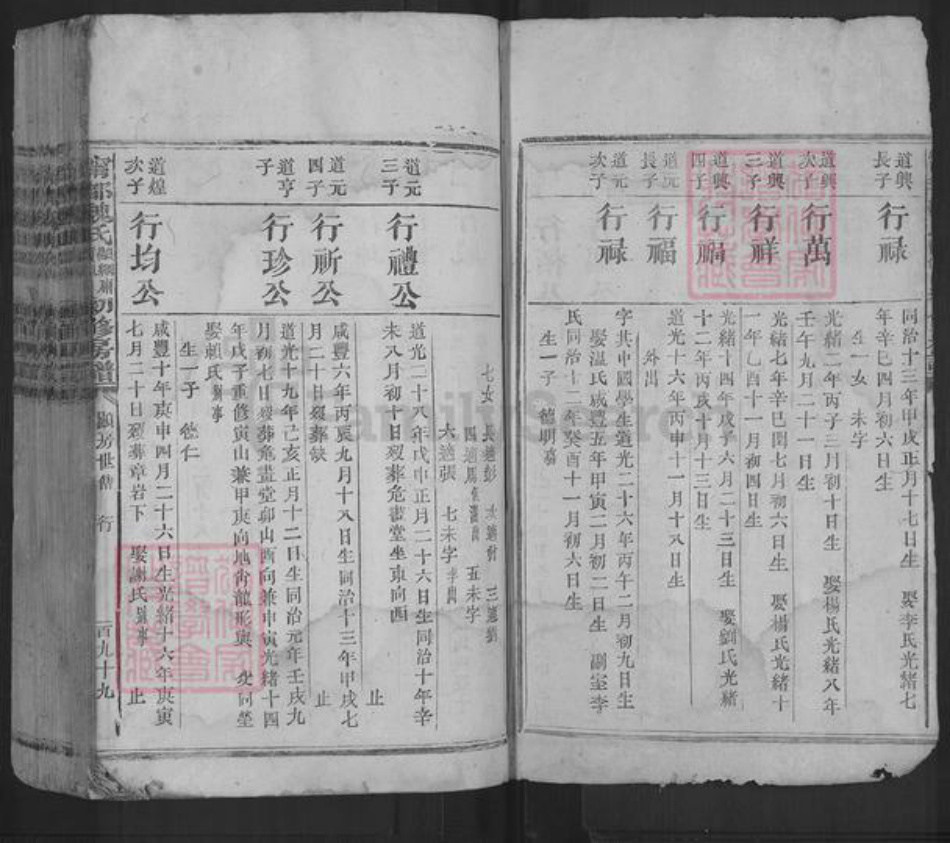 道興長子
行祿
同治十三年甲戌正月十七日生 娶李氏光緒七
年辛巳四月初六日生
生一女 未字
道興次子
行萬
光緒二年丙子三月初十日生 娶楊氏光緒八年
壬午九月二十一日生
道興三子
行祥
光緒七年辛巳閏七月初六日生 娶楊氏光緒十
一年乙酉十一月初四日生
道興四子
行禍
光緒十四年戊子六月二十三日生 娶劉氏光緒
十二年丙戌十月十三日生
道元長子
行福
道光十六年丙申十一月十八日生
外出
道元次子
行祿
字其中國學生道光二十六年丙午二月初九日生
娶温氏咸豐五年甲寅二月初二日生 副室李
氏同治十二年癸酉十一月初六日生
生一子 德明嘉
七女 長適彭 次適曾 三適劉
四適馬 五未字
六適張 七未字
道元三子
行禮公
道光二十八年戊申正月二十六日生同治十年辛
未八月初十日歿葬危畫堂坐東向西
止
道元四子
行祈公
咸豐六年丙辰九月十八日生同治十三年甲戌七
月二十日歿葬缺
止
道亨子
行珍公
道光十九年己亥正月十二日生同治元年壬戌九
月初七日歿葬危畫堂卯山酉向兼申寅光緒十四
年戊子重修寅山兼甲庚向地肖龍形與 同塋
娶賴氏
生一子 德仁
道煌次子
行均公
咸豐十年庚申四月二十六日生光緒十六年庚寅
七月二十日歿葬章岩下 娶謝氏 止
甯都陳氏 初修房譜
顯房世系 行
一百九十九
FamilySearch